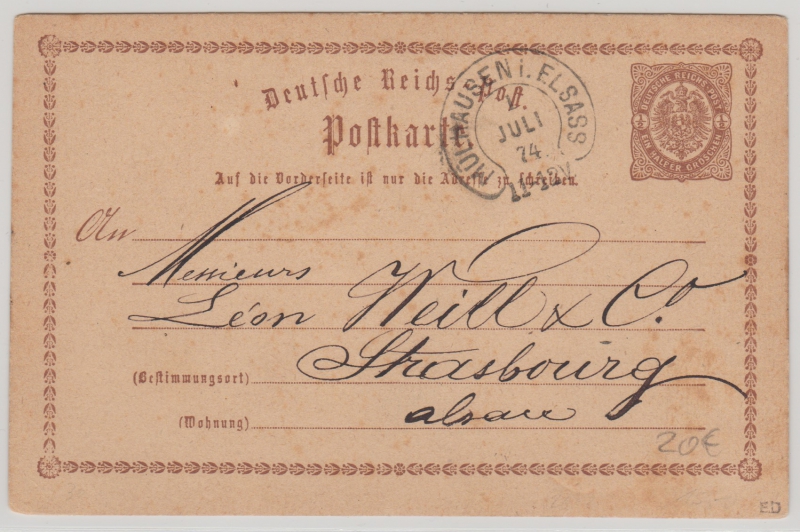 Deutsche Reichs-Post.
Postkarte
Auf die Vorderseite ist nur die Adresse zu schreiben.
MÜLHAUSEN i. ELSASS
1
JULI
74.
11-12V.
DEUTSCHE REICHS-POST
½ ½
EIN HALBER GROSCHEN
An
Messieurs
Léon Weill & Co
(Bestimmungsort) Strasbourg
(Wohnung) alsace
20€
ED